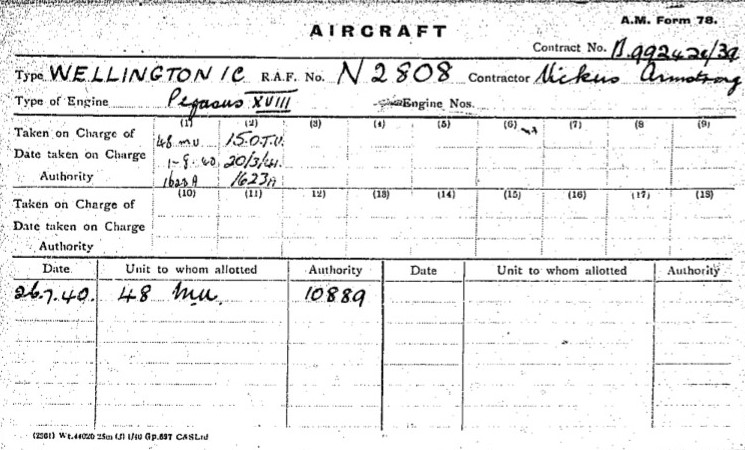 AIRCRAFT
A.M. Form 78.
Contract No. B.992424/39
Type WELLINGTON IC R.A.F. No. N2808 Contractor Vickers Armstrong
Type of Engine Pegasus XVIII Engine Nos.
(1) (2) (3) (4) (5) (6) (7) (8) (9)
Taken on Charge of 48 mu 15.O.T.U.
Date taken on Charge 1-8-40 20/3/41.
Authority 1623A 1623A
(10) (11) 12) (13) (14) (15) (16) (17) (18)
Taken on Charge of
Date taken on Charge
Authority
Date Unit to whom allotted Authority Date Unit to whom allotted Authority
26.7.40. 48 mu. 10889
(2361) Wt.44020 25m (J) 1/40 Gp.697 C&SLtd